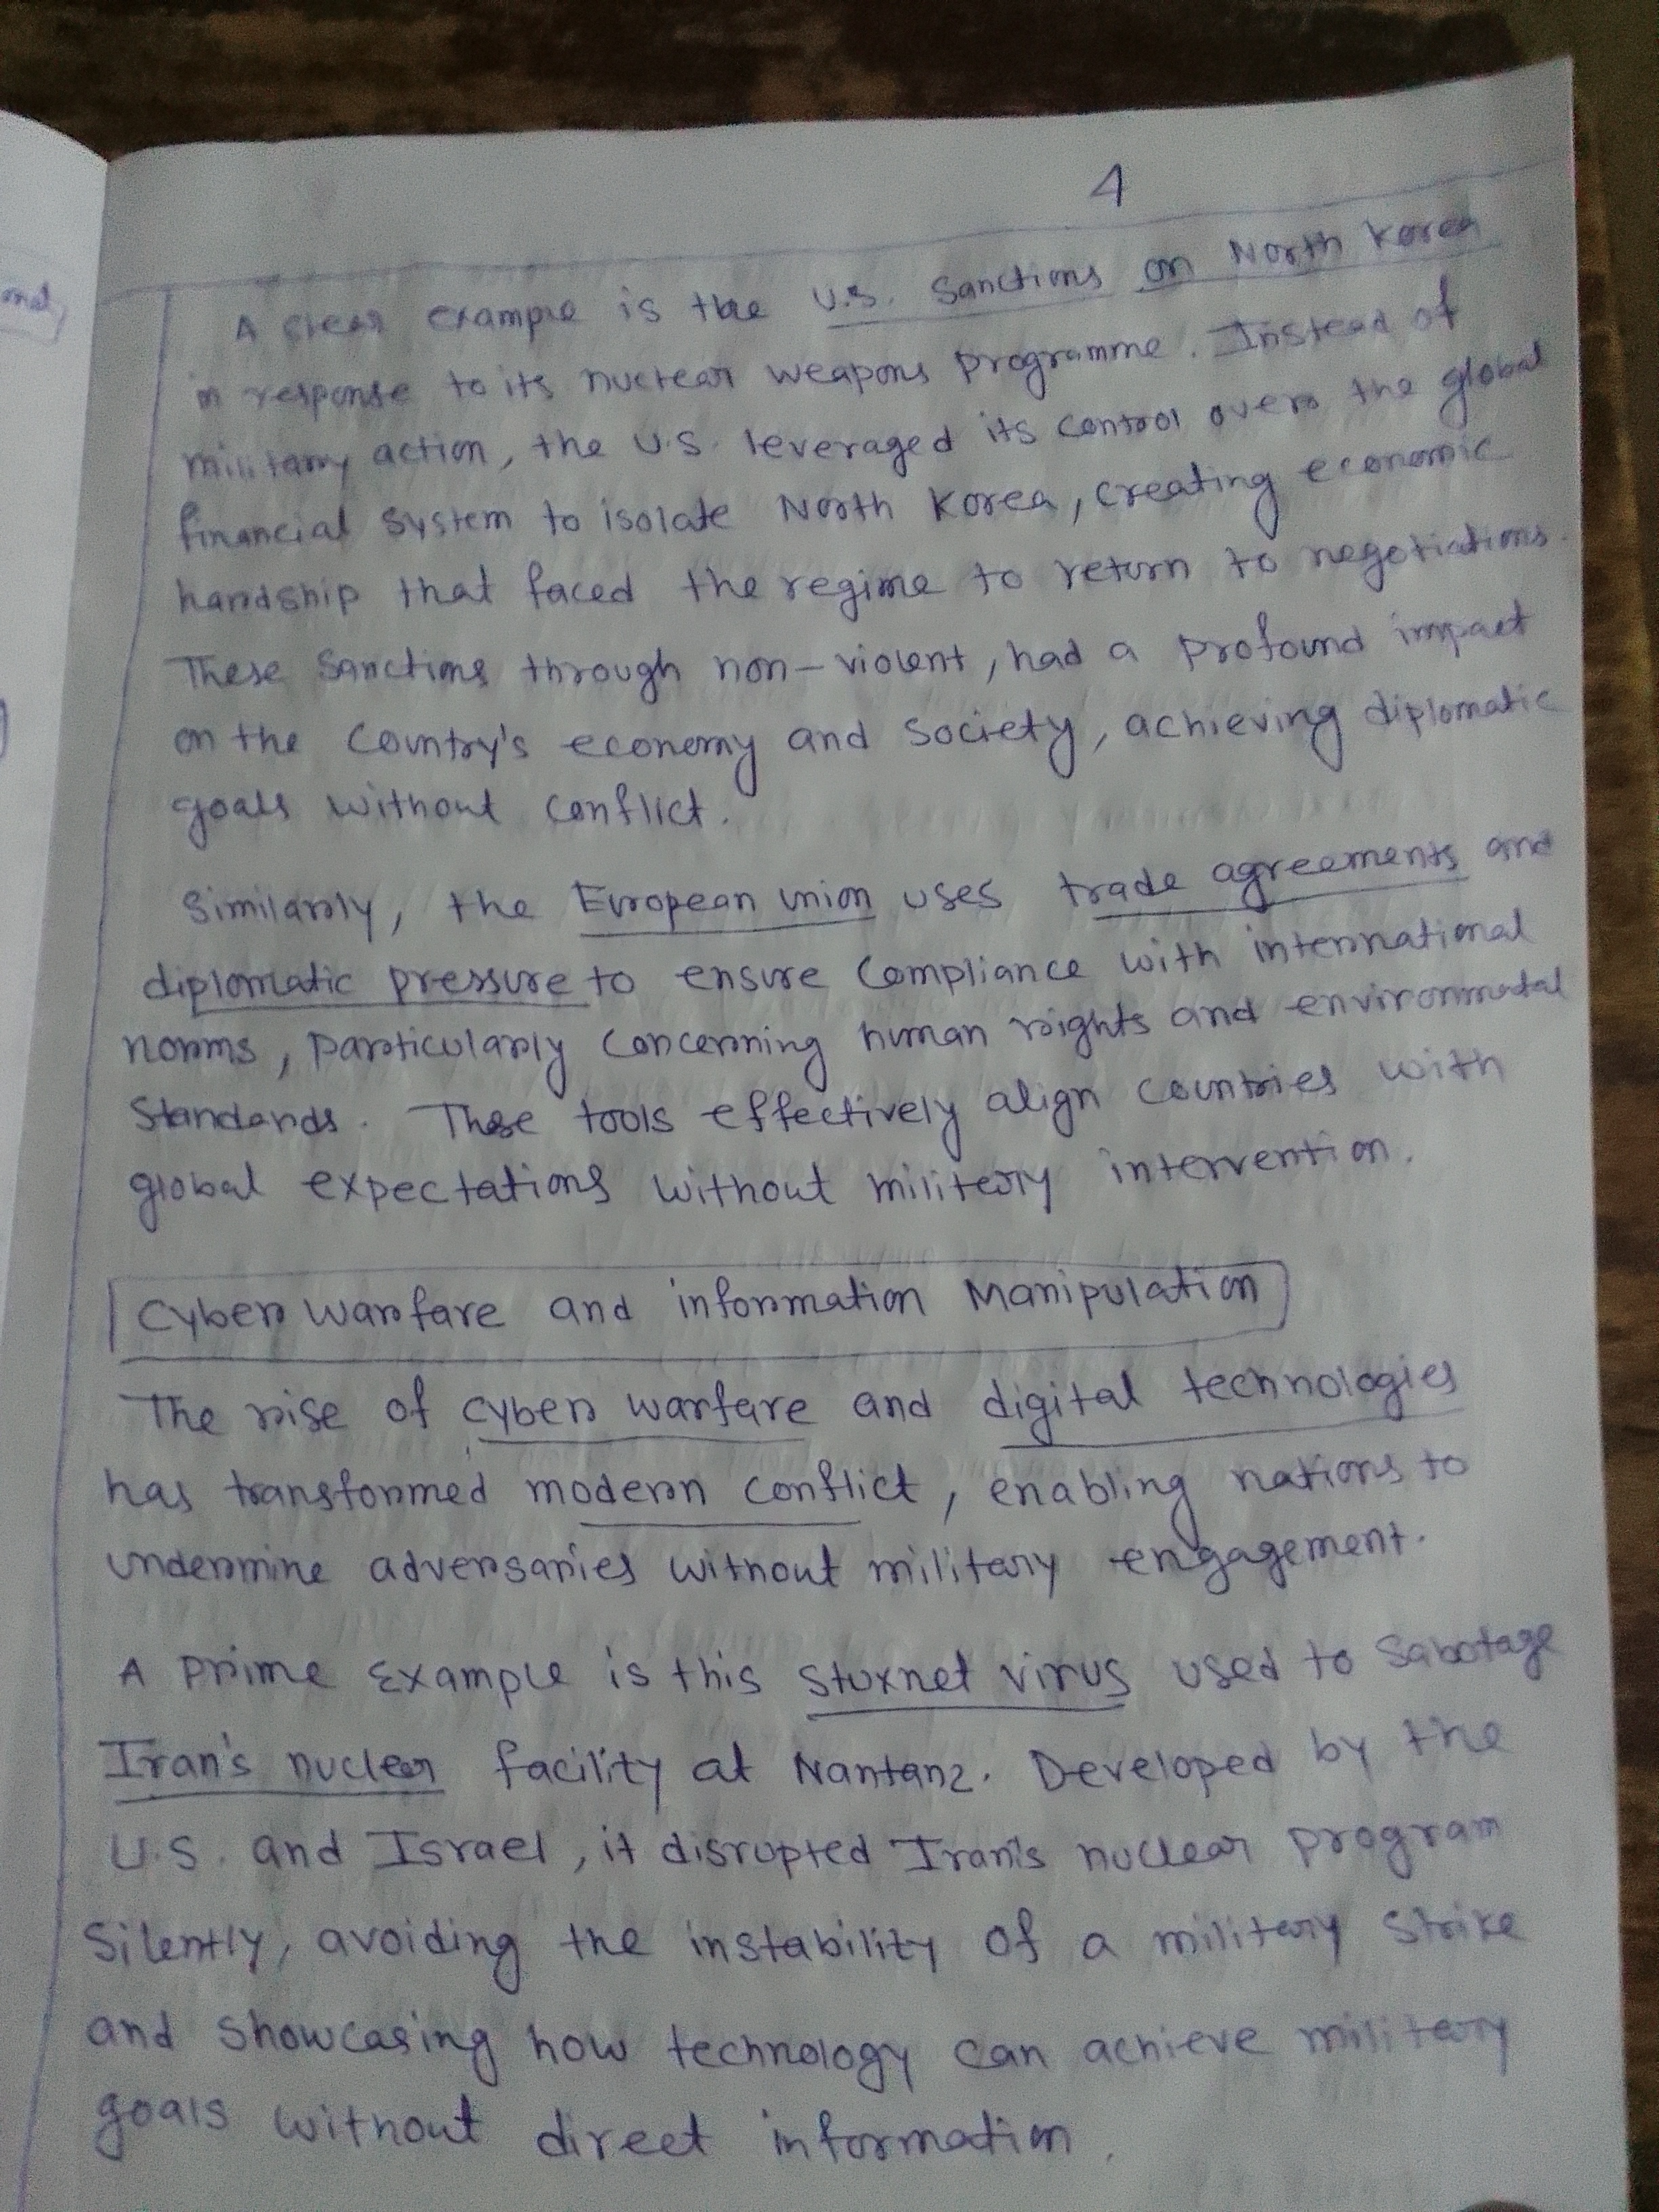 4
A clear example is the U.S. Sanctions on North Korea
in response to its nuclear weapons programme. Instead of
military action, the U.S. leveraged its control over the global
financial system to isolate North Korea, creating economic
hardship that faced the regime to return to negotiations.
These Sanctions through non-violent, had a profound impact
on the country's economy and society, achieving diplomatic
goals without conflict.
Similarly, the European union uses trade agreements and
diplomatic pressure to ensure compliance with international
norms, particularly concerning human rights and environmetal
Standards. These tools effectively align countries with
global expectations without military intervention.
Cyber warfare and information Manipulation
The rise of cyber warfare and digital technologies
has transformed modern conflict, enabling nations to
undermine adversaries without military engagement.
A prime Example is this stuxnet virus used to Sabotage
Iran's nuclear facility at Nantanz. Developed by the
U.S. and Israel, it disrupted Iran's nuclear program
Silently, avoiding the instability of a military strike
and showcasing how technology can achieve military
goals without direct information.